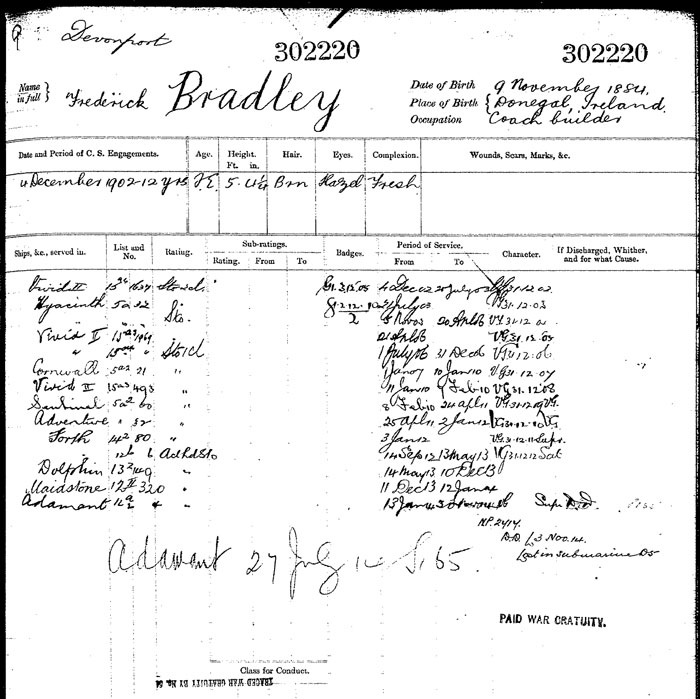 Devonport
302220 302220
Name in full } Frederick Bradley
Date of Birth 9 November 1884.
Place of Birth { Donegal, Ireland.
Occupation Coach builder
Date and Period of C. S. Engagements. Age. Height. Ft. in. Hair. Eyes. Complexion. Wounds, Scars, Marks, &c.
4 December 1902-12 yrs 5. Brn Hazel Fresh
Ships, &c., served in. List and No. Rating. Sub-ratings. Rating. From To Badges. Period of Service. From To Character. If Discharged, Whither, and for what Cause.
Vivid II 4 Dec 02 31.12.02
Hyacinth Sto. 31.12.03
Vivid II 5 Nov 05 VG 31.12.04
VG 31.12.05
" Sto 1cl 1 July 06 31 Dec 06 VG 31.12.06
Cornwall 21 " 1 Jan 07 10 Jan 10 VG 31.12.07
Vivid II 11 Jan 10 7 Feb 10 VG 31.12.08
Sentinel 60 " 8 Feb 10 24 Apl 11 VG 31.12.09 VG.
Adventure " 32 " 25 Apl 11 2 Jan 12 VG 31.12.10 VG
Forth 80 " 3 Jan 12 VG 31.12.11 Supr.
6 Act Ld Sto 14 Sep 12 13 May 13 VG 31.12.12 Sat
Dolphin 149 " 14 May 13 10 Dec 13
Maidstone 12 II 320 " 11 Dec 13 12 Jan 14
Adamant " 13 Jan 14 Supr D.D.
NP. 2414.
D.D. 3 Nov. 14.
Lost in submarine D5
Adamant 27 July 14
PAID WAR GRATUITY.
Class for Conduct.
TRACED WAR GRATUITY BY No. 54